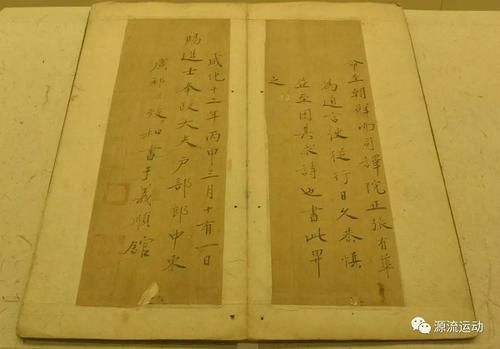 命至朝鮮而司譯院正張有華
為官使從行日久恭慎
茲至因其求詩也書此畀
之
成化十二年丙申三月十有一日
賜進士奉政大夫戶部郎中東
廣祁順致和書于義順館
源流运动